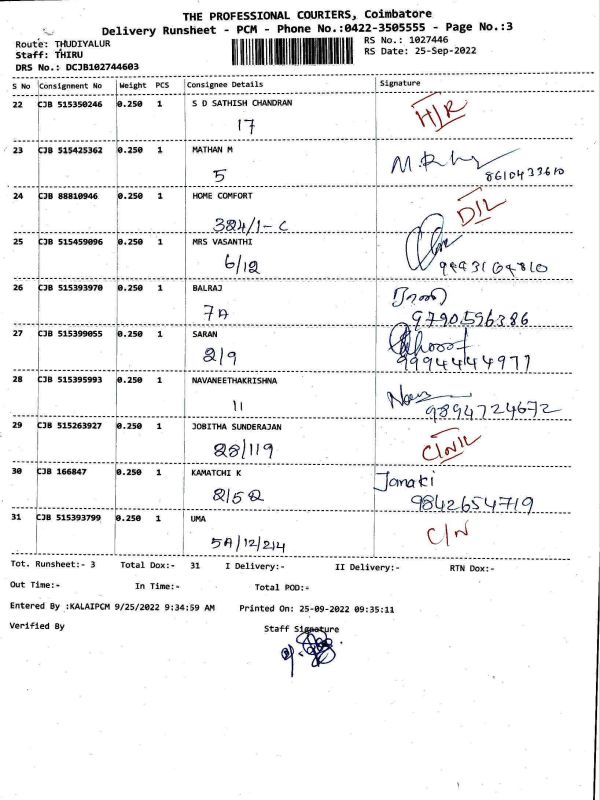 THE PROFESSIONAL COURIERS, Coimbatore
Delivery Runsheet - PCM - Phone No.:0422-3505555 - Page No.:3
Route: THUDIYALUR RS No.: 1027446
Staff: THIRU RS Date: 25-Sep-2022
DRS No.: DCJB102744603
S No Consignment No Weight PCS Consignee Details Signature
22 CJB 515350246 0.250 1 S D SATHISH CHANDRAN
17
23 CJB 515425362 0.250 1 MATHAN M
5 8610433610
24 CJB 88810946 0.250 1 HOME COMFORT
324/1-C D/L
25 CJB 515459096 0.250 1 MRS VASANTHI
6/12
26 CJB 515393970 0.250 1 BALRAJ
7A 9790596386
27 CJB 515399055 0.250 1 SARAN
2/9 9994444977
28 CJB 515395993 0.250 1 NAVANEETHAKRISHNA
11 9894724672
29 CJB 515263927 0.250 1 JOBITHA SUNDERAJAN
28/119
30 CJB 166847 0.250 1 KAMATCHI K Janaki
2/52 9842654719
31 CJB 515393799 0.250 1 UMA C/N
5A/12/214
Tot. Runsheet:- 3 Total Dox:- 31 I Delivery:- II Delivery:- RTN Dox:-
Out Time:- In Time:- Total POD:-
Entered By :KALAIPCM 9/25/2022 9:34:59 AM Printed On: 25-09-2022 09:35:11
Verified By Staff Signature